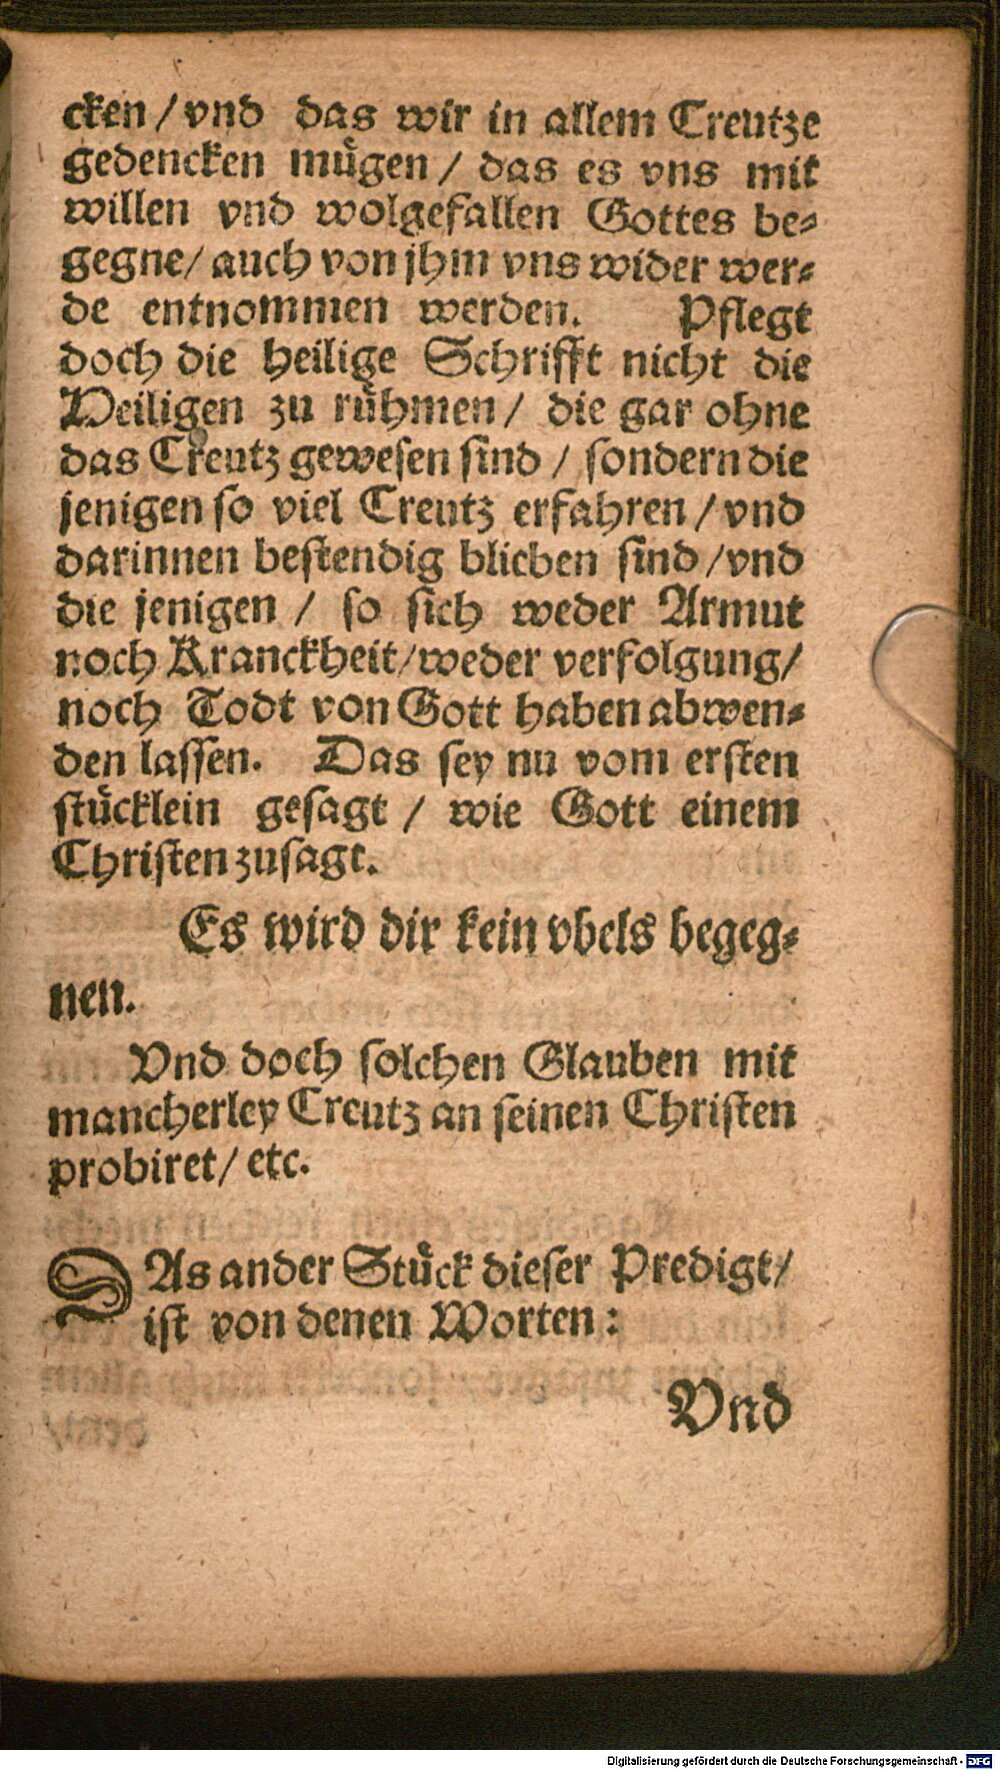 cken / vnd das wir in allem Creutze
gedencken muͤgen / das es vns mit
willen vnd wolgefallen Gottes be-
gegne / auch von jhm vns wider wer-
de entnommen werden. Pflegt
doch die heilige Schrifft nicht die
Heiligen zu ruͤhmen / die gar ohne
das Creutz gewesen sind / sondern die
jenigen so viel Creutz erfahren / vnd
darinnen bestendig blieben sind / vnd
die jenigen / so sich weder Armut
noch Kranckheit / weder verfolgung /
noch Todt von Gott haben abwen-
den lassen. Das sey nu vom ersten
stuͤcklein gesagt / wie Gott einem
Christen zusagt.
Es wird dir kein vbels begeg-
nen.
Vnd doch solchen Glauben mit
mancherley Creutz an seinen Christen
probiret / etc.
DAs ander Stuͤck dieser Predigt /
ist von denen Worten:
Vnd
Digitalisierung gefördert durch die Deutsche Forschungsgemeinschaft - DFG